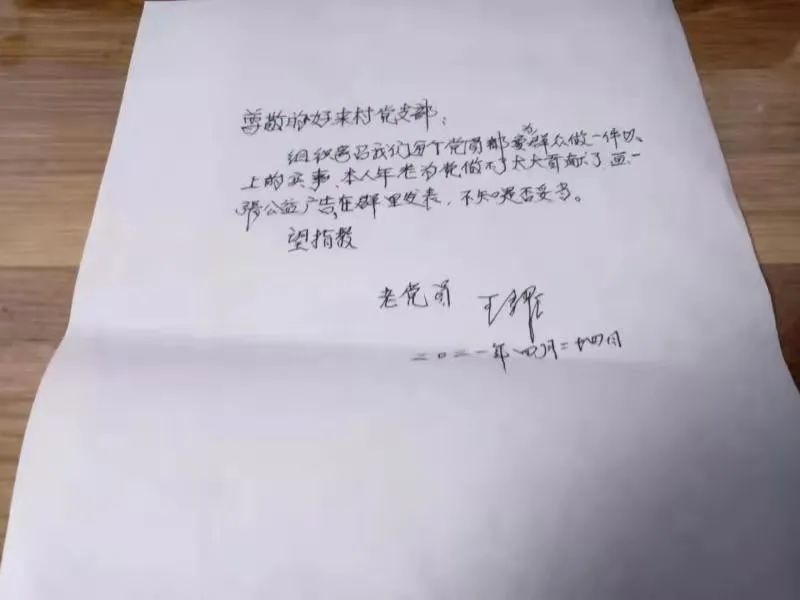 尊敬的好来村党支部：
组织号召我们每个党员都要为群众做一件以
上的实事、本人年老为党做不了太大贡献了画一
张公益广告在群里发表，不知是否妥当。
望指教
老党员 王
二〇二一年四月二十四日